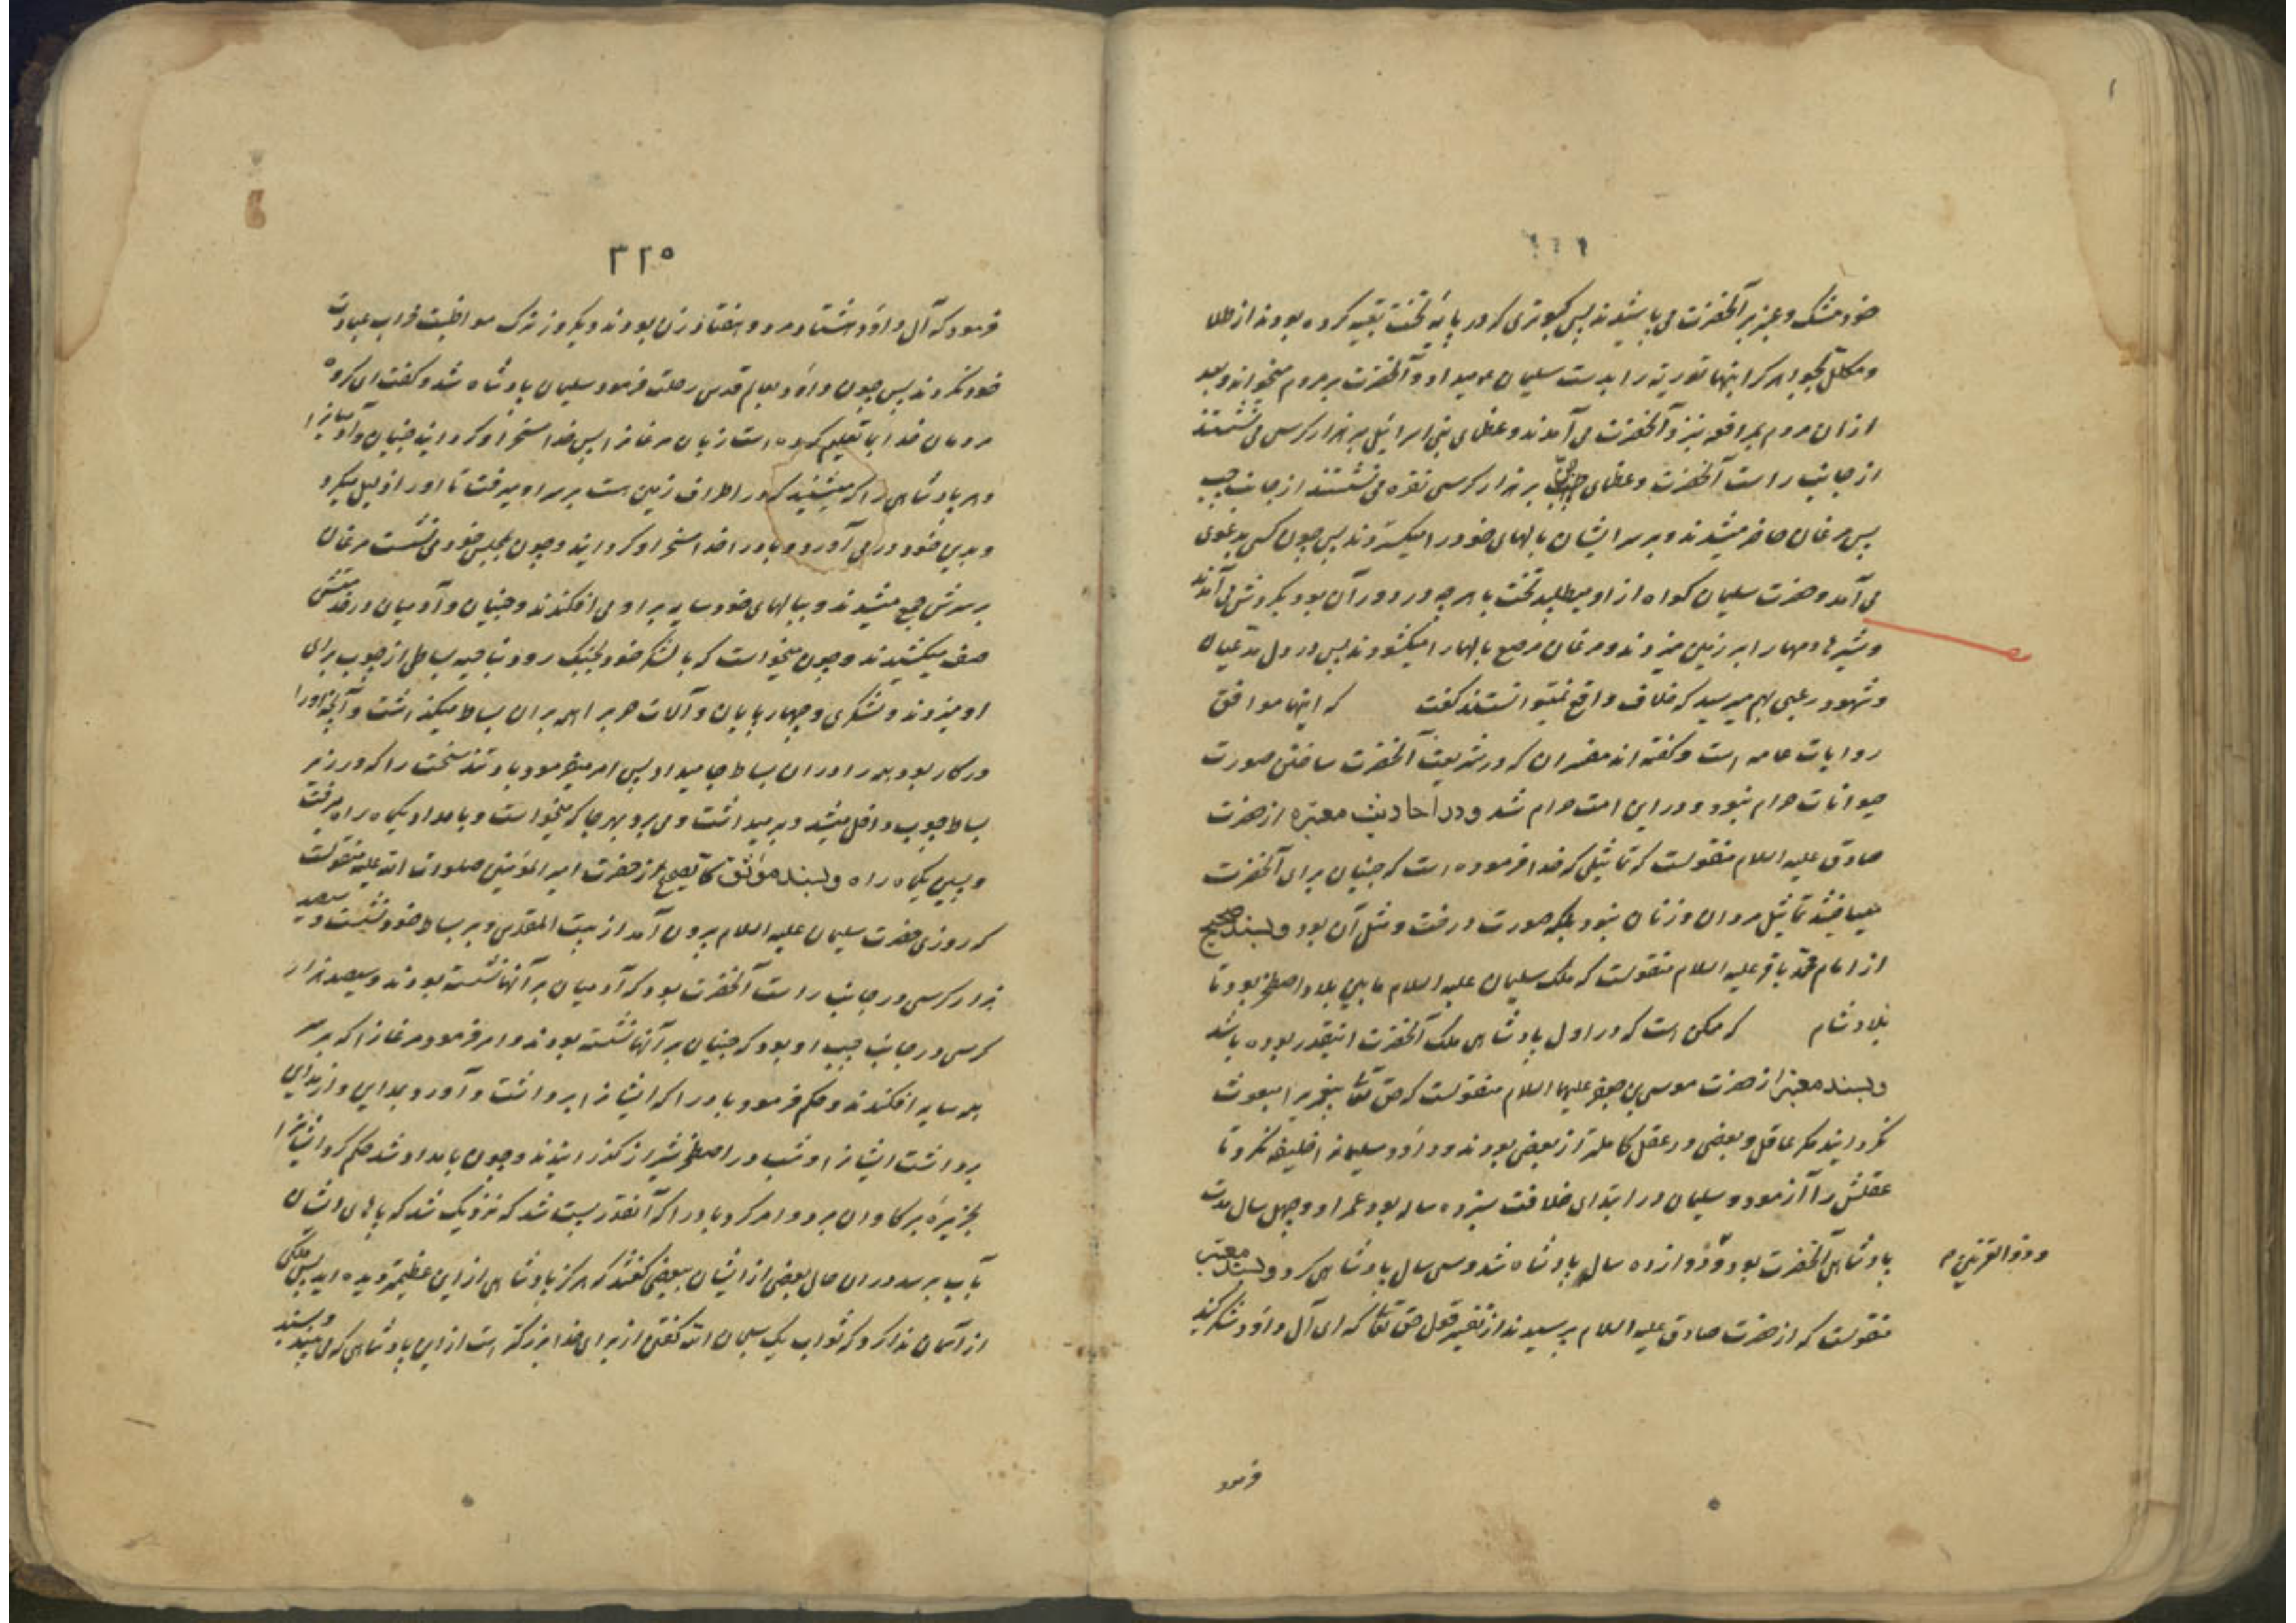 خود مشک و عنبر بر آنحضرت می پاشیدند پس کبوتری که در پایهٔ تخت تعبیه کرده بودند از طلا
و مکلل بجواهر کرانبها توریة را بدست سلیمان ع میداد و آنحضرت بر مردم میخواند و بعد
ازان مردم بمرافعه نزد آنحضرت می آمدند و عظمای بنی اسرائیل بر هزار کرسی می نشستند
از جانب راست آنحضرت و عظمای جن بر هزار کرسی نقره می نشستند از جانب چپ
پس مرغان حاضر میشدند و بر سر ایشان بالهای خود را میکستردند پس چون کسی بدعوی
می آمد و حضرت سلیمان کواه از او میطلبید تخت با هر چه در دور آن بود بکردش می آمدند
و شیرها دمها را بر زمین میزدند و مرغان مرصع بالها را میکشودند پس در دل مدعیان
و شهود رعبی بهم میرسید که خلاف واقع نمیتوانستند کفت که اینها موافق
روایات عامه است و کفته اند مفسران که در شریعت آنحضرت ساختن صورت
حیوانات حرام نبود و در این امت حرام شد و در احادیث معتبره از حضرت
صادق علیه السلام منقولست که تماثیلی که خدا فرموده است که جنیان برای آنحضرت
میساختند تماثیل مردان و زنان نبود بلکه صورت درخت و مثل آن بود و بسند صحیح
از امام محمد باقر علیه السلام منقولست که ملک سلیمان علیه السلام مابین بلاد اصطخر بود تا
بلاد شام که ممکن است که در اول پادشاهی ملک آنحضرت اینقدر بوده باشد
و بسند معتبر از حضرت موسی بن جعفر علیهما السلام منقولست که حق تعالی پیغمبر را مبعوث
نکردانید مکر عاقل و بعضی در عقل کاملتر از بعضی بودند و داود سلیمانرا خلیفه نکرد تا
عقلش را آزمود و سلیمان در ابتدای خلافت سیزده ساله بود عمر او و چهل سال مدت
پادشاهی آنحضرت بود و ذوازده سال پادشاه شد و سی سال پادشاهی کرد و بسند معتبر
و ذو القرنین م
منقولست که از حضرت صادق علیه السلام پرسیدند از تفسیر قول حق تعالی که ای آل داود شکر کنید
فرمود
۳۲۵
فرمود که آل داود هشتاد مرد و هفتاد زن بودند و یکروز ترک مواظبت محراب عبادت
خود نکردند پس چون داود بعالم قدس رحلت فرمود سلیمان پادشاه شد و کفت ای کروه
مردمان خدا بما تعلیم کرده است زبان مرغانرا پس خدا مسخر او کردانید جنیان و آدمیانرا
و هر پادشاهی را که میشنید که در اطراف زمین است بر سر او میرفت تا او را ذلیل میکرد
و بدین خود در می آورد و باد را خدا مسخر او کردانید و چون بمجلس خود می نشست مرغان
بر سرش جمع میشدند و ببالهای خود سایه بر او می افکندند و جنیان و آدمیان در خدمتش
صف میکشیدند و چون میخواست که با لشکر خود بجنک رود بناحیه بساطی از چوب برای
او میزدند و لشکری و چهارپایان و آلات حرب را همه بر ان بساط میکذاشت و آنچه او را
در کار بود همه را در ان بساط جا میداد پس امر میفرمود باد تند سخت را که در زیر
بساط چوب داخل میشد و بر میداشت و می برد بهر جا که میخواست و بامداد یکماه راه میرفت
و پسین یکماه راه و بسند موثق کالصحیح از حضرت امیر المؤمنین صلوات الله علیه منقولست
که روزی حضرت سلیمان علیه السلام بیرون آمد از بیت المقدس و بر بساط خود نشست و سیصد
هزار کرسی در جانب راست آنحضرت بود که آدمیان بر آنها نشسته بودند و سیصد هزار
کرسی در جانب چپ او بود که جنیان بر آنها نشسته بودند و امر فرمود مرغانرا که بر سر
همه سایه افکندند و حکم فرمود باد را که ایشانرا برداشت و آورد بمداین و از مداین
برداشت ایشانرا و شب در اصطخر شیراز کذرانیدند و چون بامداد شد حکم کرد ایشانرا
بجزیره برکاوان برد و امر کرد باد را که آنقدر پست شد که نزدیک شد که پاهای ایشان
بآب برسد در ان حال بعضی از ایشان ببعضی کفتند که هرکز پادشاهی از این عظیمتر دیده اید پس ملکی
از آسمان ندا کرد که ثواب یک سبحان الله کفتن از برای خدا بزرکتر است از این پادشاهی که می بینید و بسند